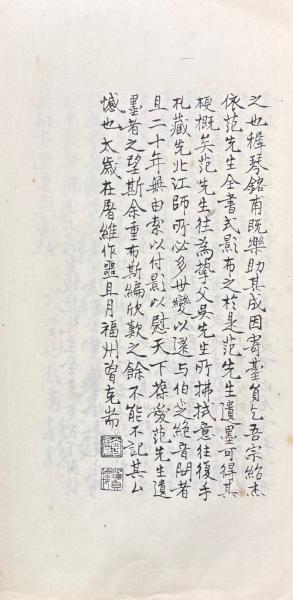 之也樨琴銘甫既樂助其成因寄墓貧乞吾宗紹杰
依范先生全書式影布之於是范先生遺墨可得其
梗概矣范先生往為摯父吳先生所拂拭意往復手
札藏先北江師所必多世變以還與伯之絕音問者
且二十年無由索以付影以慰天下葆愛范先生遺
墨者之望斯余重布斯編欣歎之餘不能不記其厶
憾也太歲在屠維作噩且月福州曾克耑